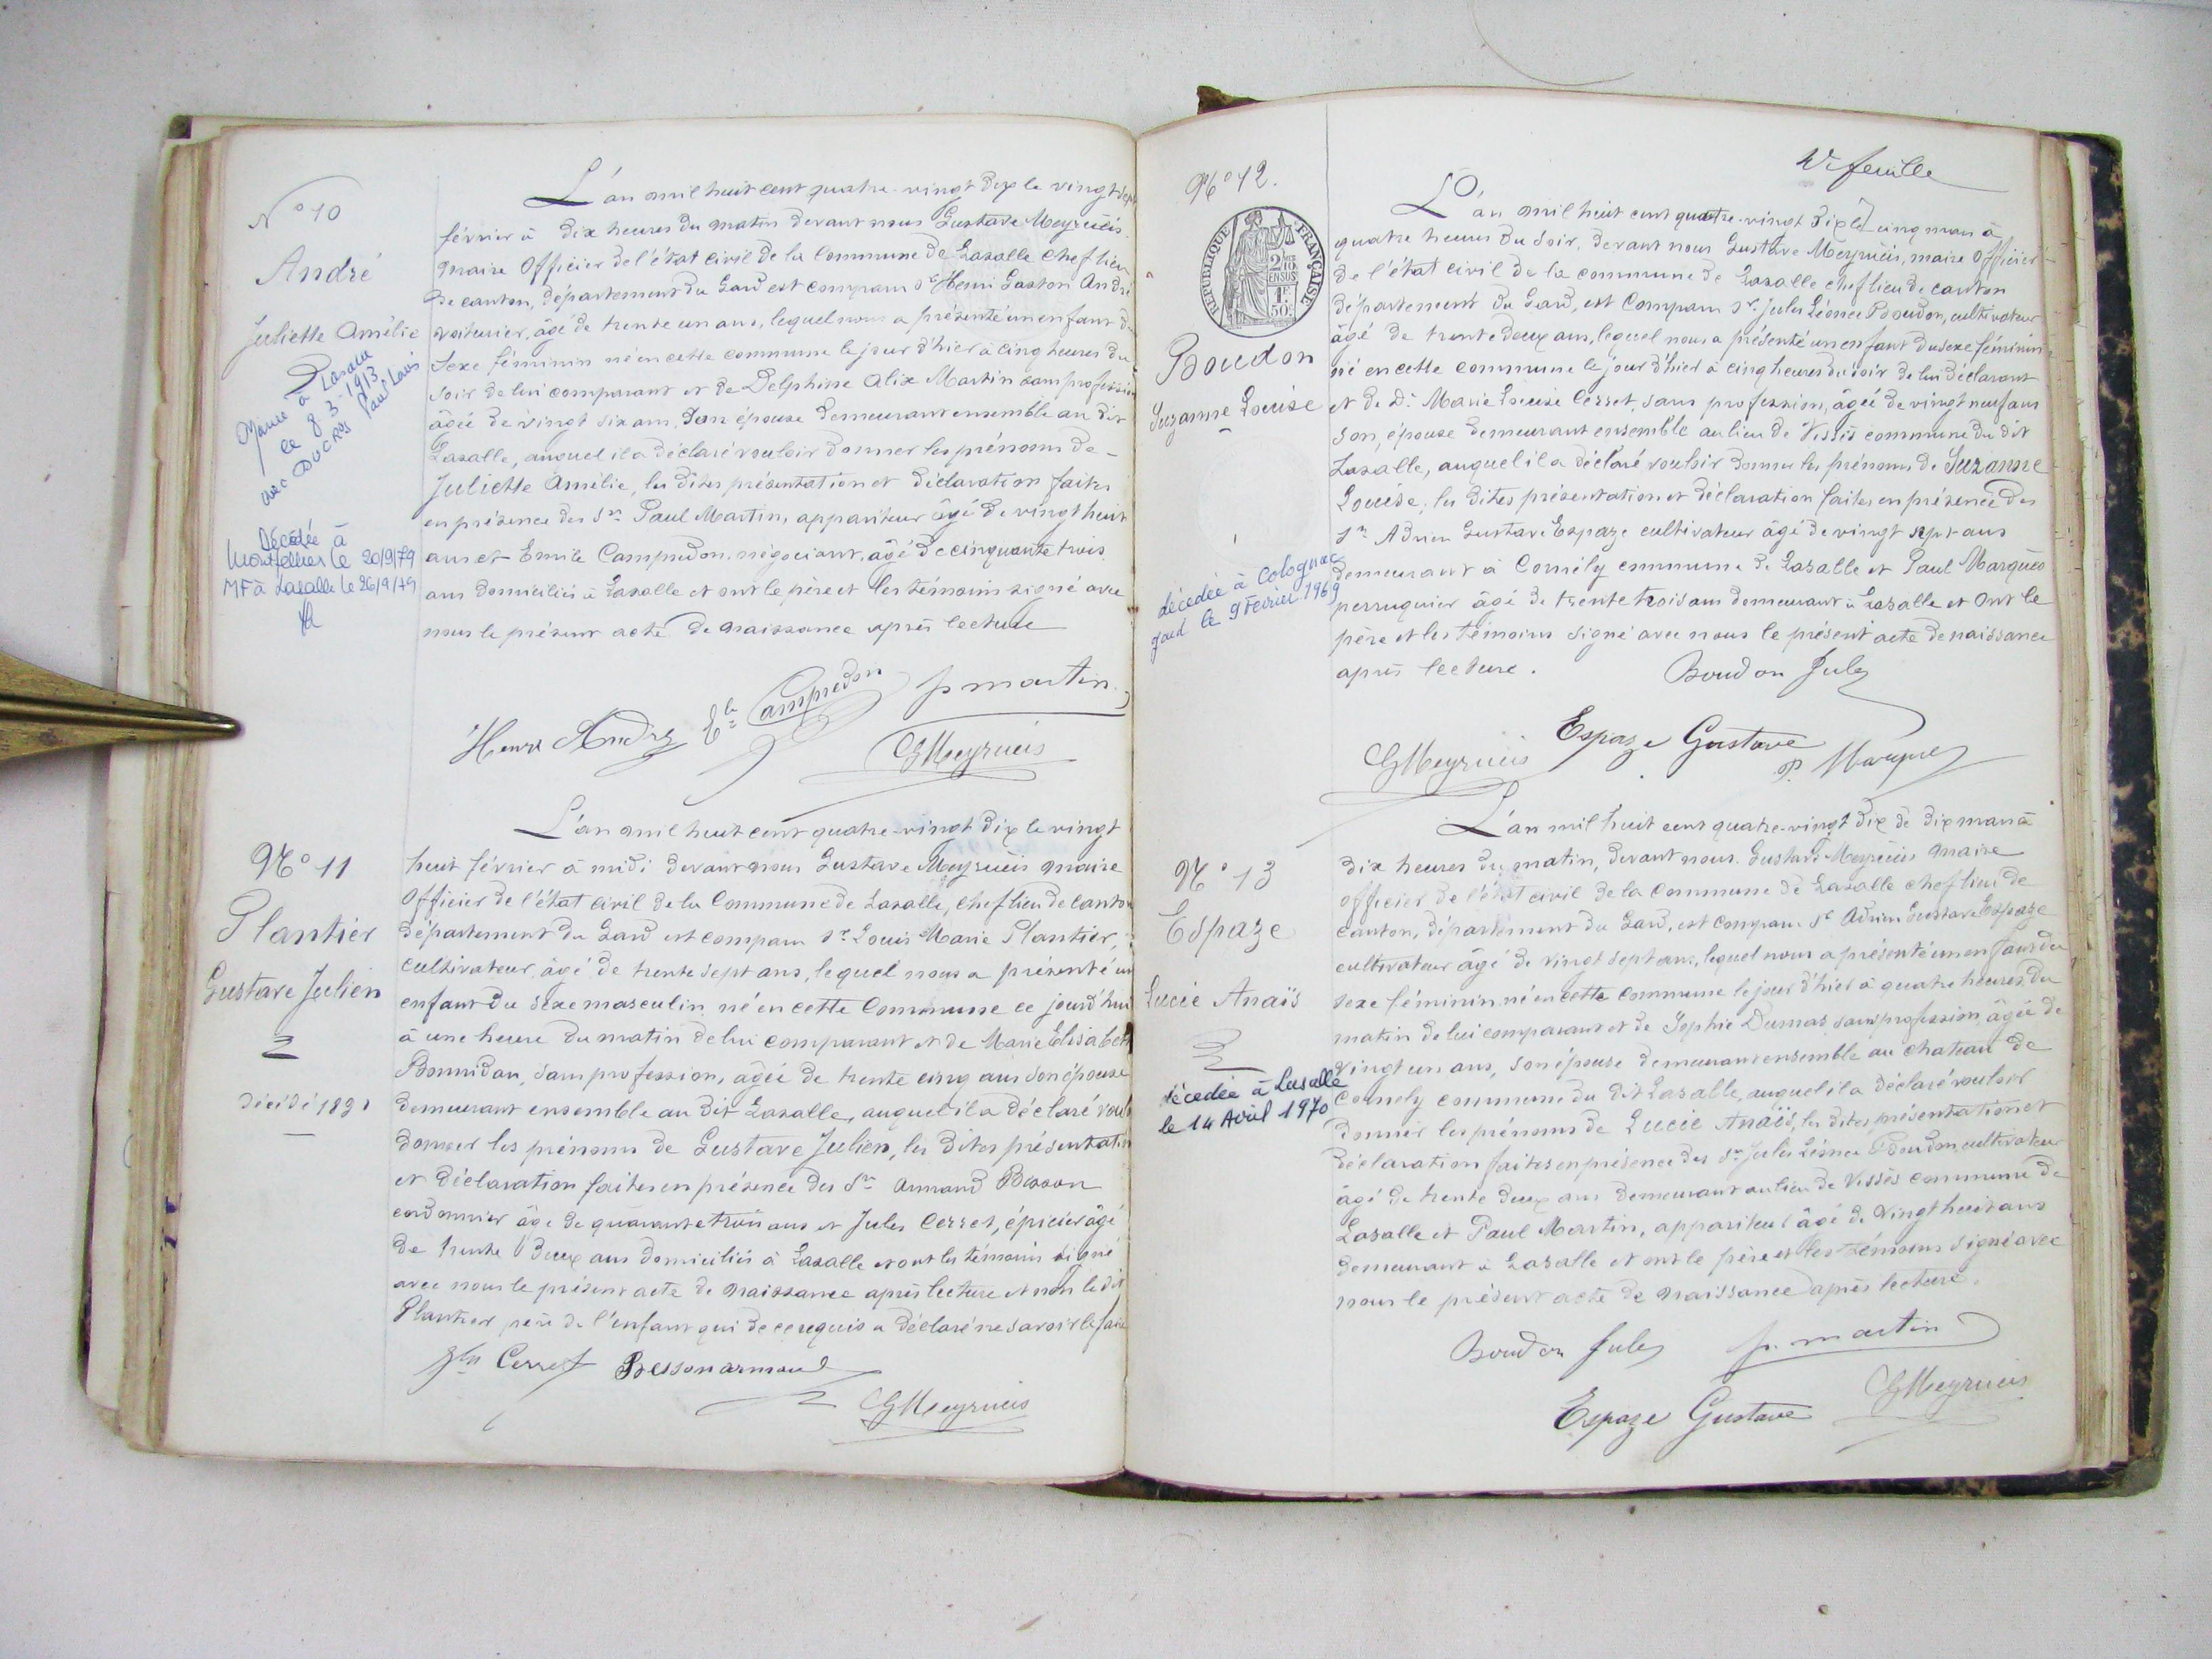 N° 10
André
Juliette Amélie
Mariée à Lasalle
le 8-3-1913
avec DUCROS Paul Louis
Décédée à
Montpellier le 20/9/79
MF à Lasalle le 26/9/79
L'an mil huit cent quatre-vingt dix le vingt sept
février à dix heures du matin devant nous Gustave Meyrueis
maire Officier de l'état civil de la Commune de Lasalle chef lieu
de canton, département du Gard est comparu Sr Henri Gaston André
voiturier, âgé de trente un ans, lequel nous a présenté un enfant du
sexe féminin né en cette commune le jour d'hier à cinq heures du
soir de lui comparant et de Delphine Alix Martin sans profession
âgée de vingt six ans, son épouse demeurant ensemble au dit
Lasalle, auquel il a déclaré vouloir donner les prénoms de -
Juliette Amélie, les dites présentation et déclaration faites
en présence des Srs Paul Martin, appariteur âgé de vingt huit
ans et Emile Campredon, négociant, âgé de cinquante trois
ans domiciliés à Lasalle et ont le père et les témoins signé avec
nous le présent acte de naissance après lecture
Henri André Ele Campredon p martin
G Meyrueis
N° 11
Plantier
Gustave Julien
Décédé 1891
L'an mil huit cent quatre-vingt dix le vingt
huit février à midi devant nous Gustave Meyrueis maire
Officier de l'état civil de la Commune de Lasalle, chef lieu de canton
département du Gard est comparu Sr Louis Marie Plantier,
cultivateur, âgé de trente sept ans, lequel nous a présenté un
enfant du sexe masculin né en cette Commune ce jourd'hui
à une heure du matin de lui comparant et de Marie Elisabeth
sans profession, âgée de trente cinq ans son épouse
demeurant ensemble au dit Lasalle, auquel il a déclaré vouloir
donner les prénoms de Gustave Julien, les dites présentation
et déclaration faites en présence des Srs Armand Besson
cordonnier âgé de quarante trois ans et Jules Cerret, épicier âgé
de trente deux ans domiciliés à Lasalle et ont les témoins signé
avec nous le présent acte de naissance après lecture et non le dit
Plantier père de l'enfant qui de ce requis a déclaré ne savoir le faire
Jles Cerret Besson armand
G Meyrueis
Ve feuille
N° 12.
RÉPUBLIQUE FRANÇAISE
2/10
EN SUS
1F
50C
Boudon
Suzanne Louise
décédée à Colognac
Gard le 9 Février 1969
L'an mil huit cent quatre-vingt dix le cinq mars à
quatre heures du soir, devant nous Gustave Meyrueis, maire Officier
de l'état civil de la commune de Lasalle chef lieu de canton
département du Gard, est comparu Sr Jules Léonce Boudon, cultivateur
âgé de trente deux ans, lequel nous a présenté un enfant du sexe féminin
né en cette commune le jour d'hier à cinq heures du soir de lui déclarant
et de De Marie Louise Cerret, sans profession, âgée de vingt neuf ans
son épouse demeurant ensemble au lieu de Vissès commune du dit
Lasalle, auquel il a déclaré vouloir donner les prénoms de Suzanne
Louise, les dites présentation et déclaration faites en présence des
Srs Adrien Gustave Espaze cultivateur âgé de vingt sept ans
demeurant à Cornély commune de Lasalle et Paul Marquès
perruquier âgé de trente trois ans demeurant à Lasalle et ont le
père et les témoins signé avec nous le présent acte de naissance
après lecture. Boudon Jules
G Meyrueis Espaze Gustave P. Marques
N° 13
Espaze
Lucie Anaïs
décédée à Lasalle
le 14 Avril 1970
L'an mil huit cent quatre-vingt dix le dix mars à
dix heures du matin, devant nous Gustave Meyrueis maire
officier de l'état civil de la Commune de Lasalle chef lieu de
canton, département du Gard, est comparu Sr Adrien Gustave Espaze
cultivateur âgé de vingt sept ans, lequel nous a présenté un enfant du
sexe féminin, né en cette commune le jour d'hier à quatre heures du
matin de lui comparant et de Sophie Dumas, sans profession, âgée de
vingt un ans, son épouse demeurant ensemble au chateau de
Cornely commune du dit Lasalle, auquel il a déclaré vouloir
donner les prénoms de Lucie Anaïs, les dites présentation et
déclaration faites en présence des Srs Jules Léonce Boudon, cultivateur
âgé de trente deux ans demeurant au lieu de Vissès commune de
Lasalle et Paul Martin, appariteur âgé de vingt huit ans
demeurant à Lasalle et ont le père et les témoins signé avec
nous le présent acte de naissance après lecture.
Boudon Jules p. martin
Espaze Gustave G Meyrueis